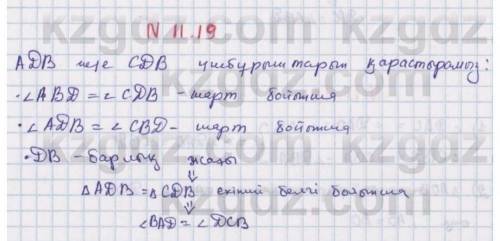 N 11.19
АДВ және СДВ үшбұрыштарын қарастырамыз:
• ∠ABD = ∠CDB - шарт бойынша
• ∠ADB = ∠CBD - шарт бойынша
• DB - барлық жағы
⇓
ΔADB = ΔCDB екінші белгі бойынша
⇓
∠BAD = ∠DCB
kzgaz.com